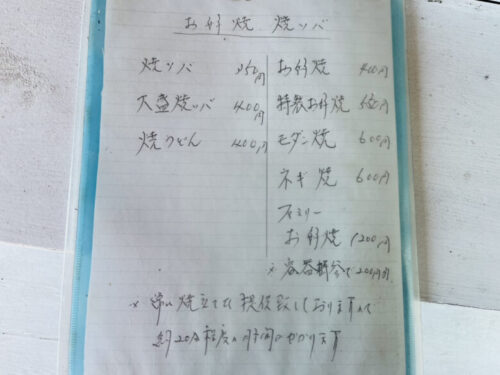 お好焼 焼ソバ
焼ソバ 350円
大盛焼ソバ 400円
焼うどん 400円
お好焼 400円
特製お好焼 500円
モダン焼 600円
ネギ焼 600円
ファミリー
お好焼 1200円
※ 容器 200円
※ 焼立てを提供致しております
約20分程度の時間がかかります